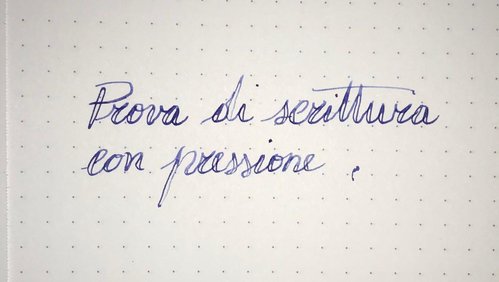 Prova di scrittura
con pressione .